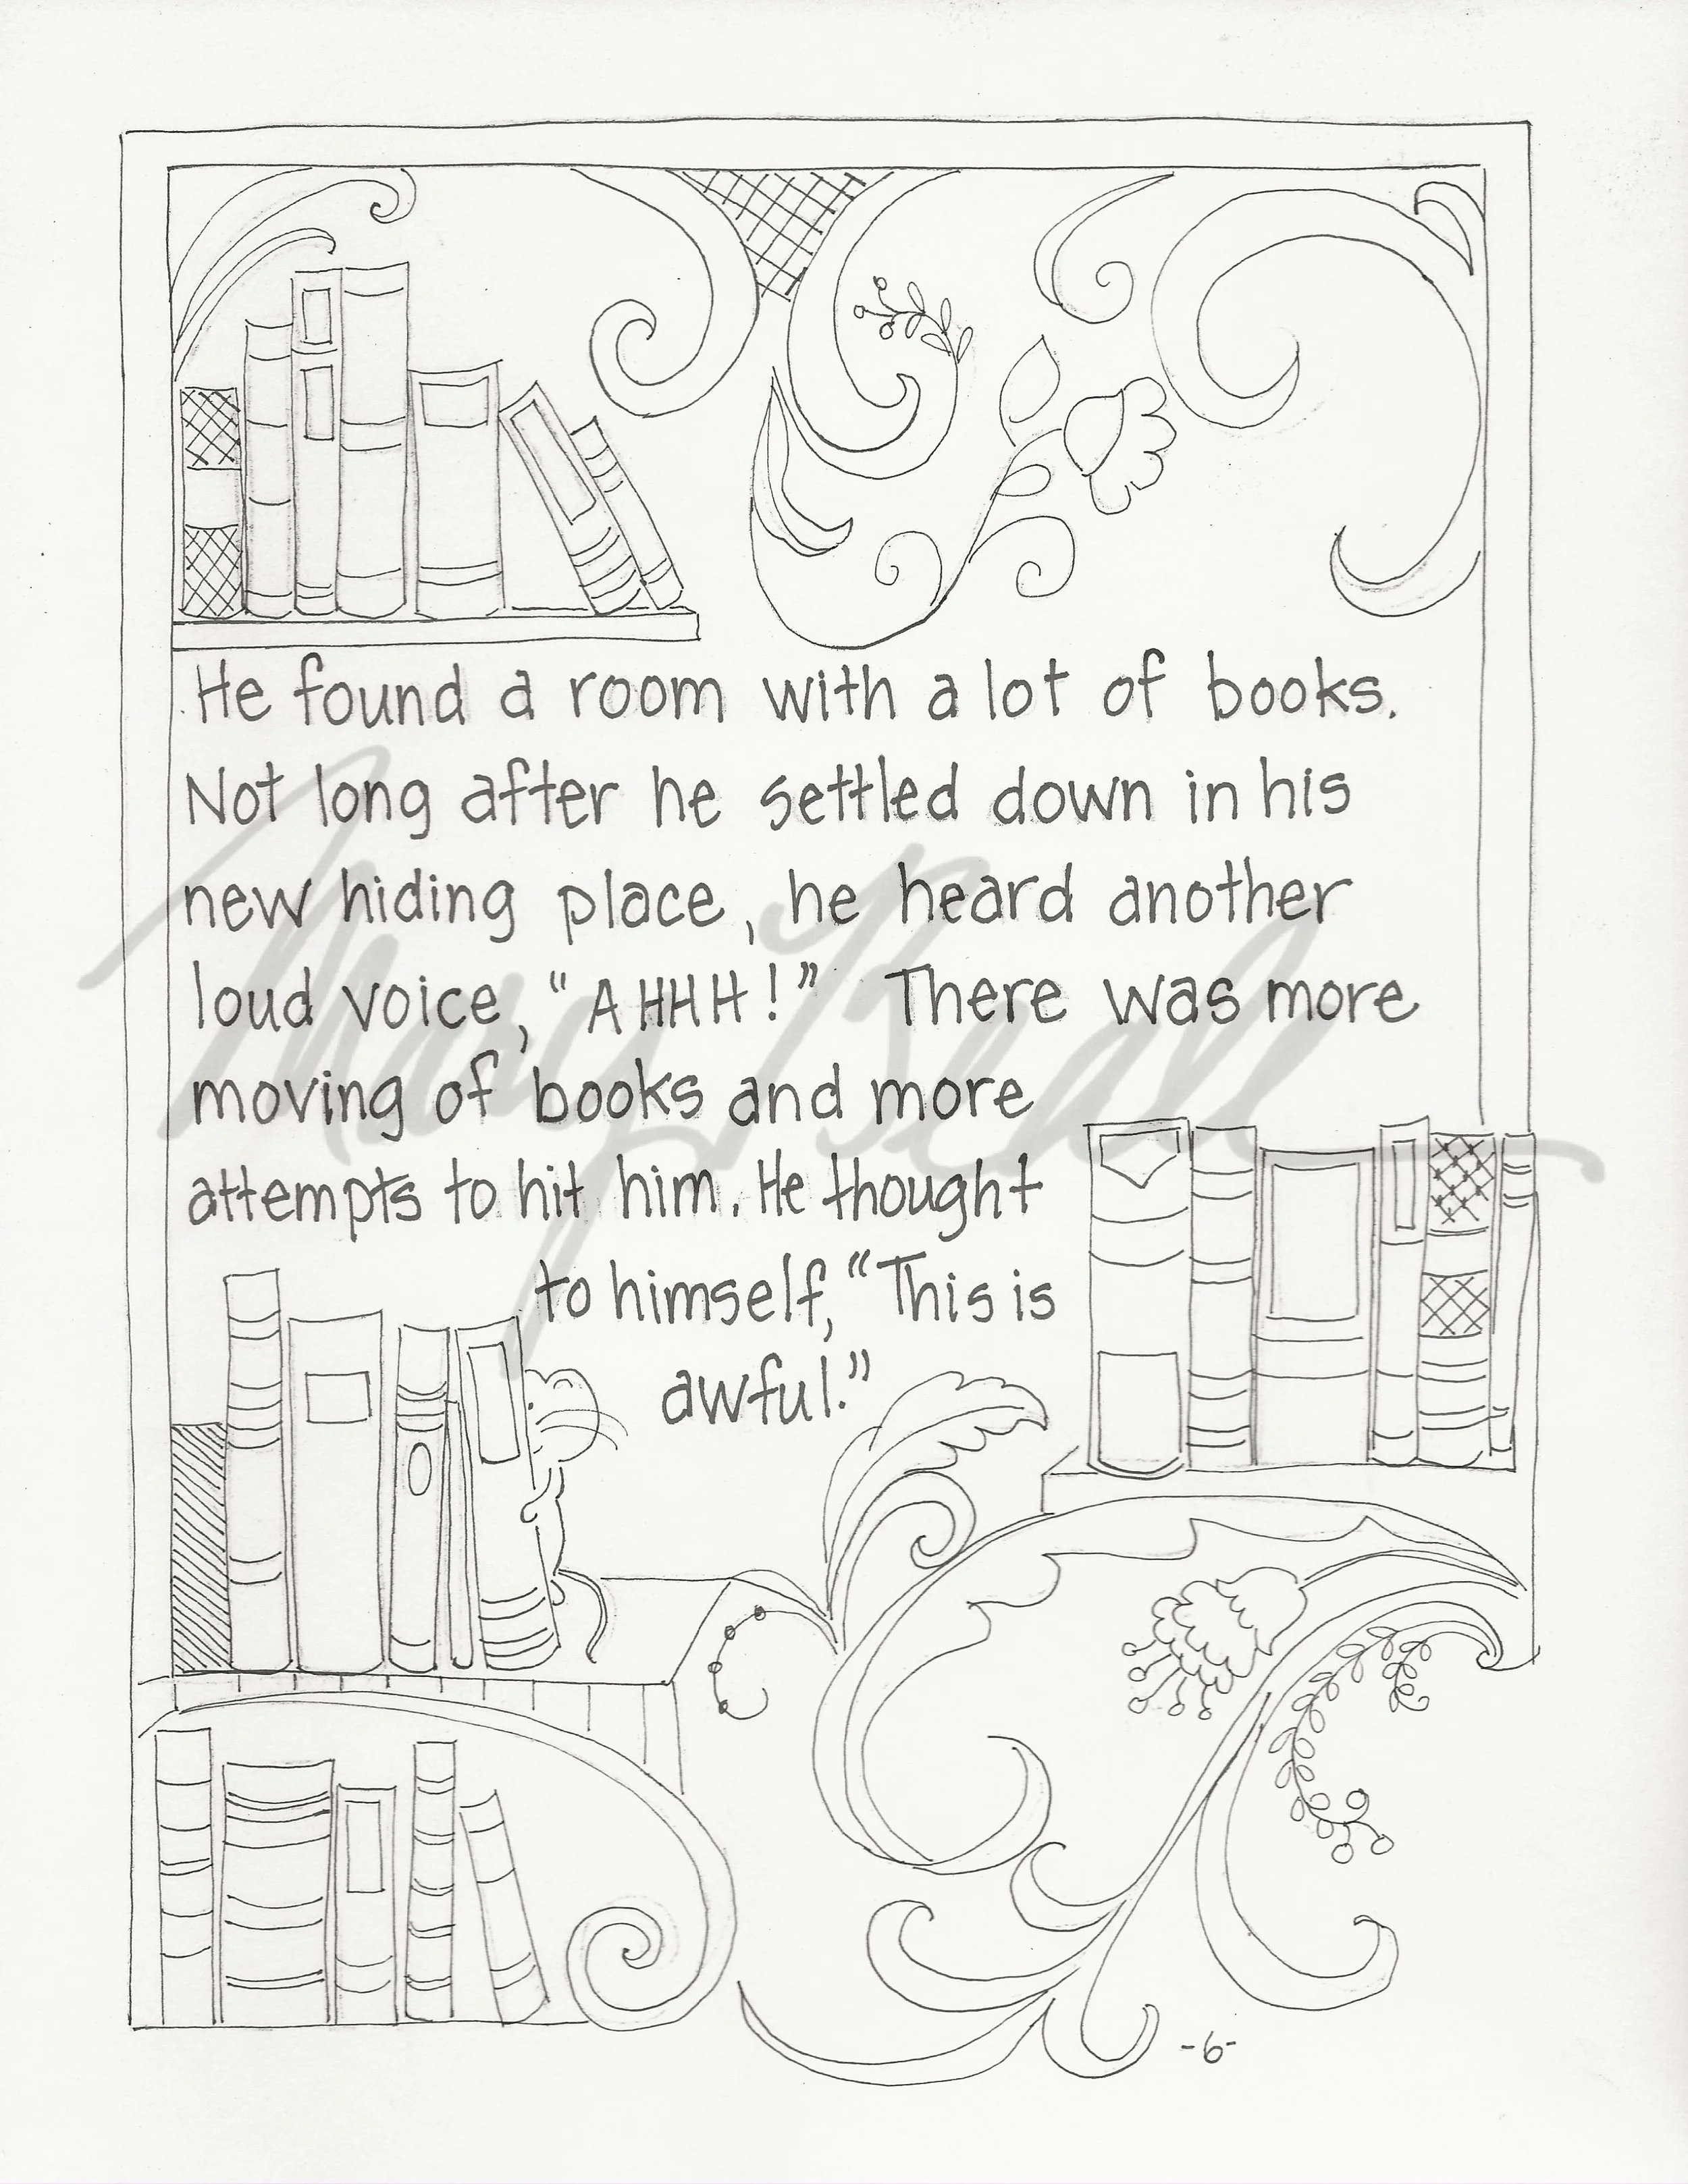 He found a room with a lot of books.
Not long after he settled down in his
new hiding place, he heard another
loud voice, "AHHH!" There was more
moving of books and more
attempts to hit him. He thought
to himself, "This is
awful."
Mary Beall
-6-